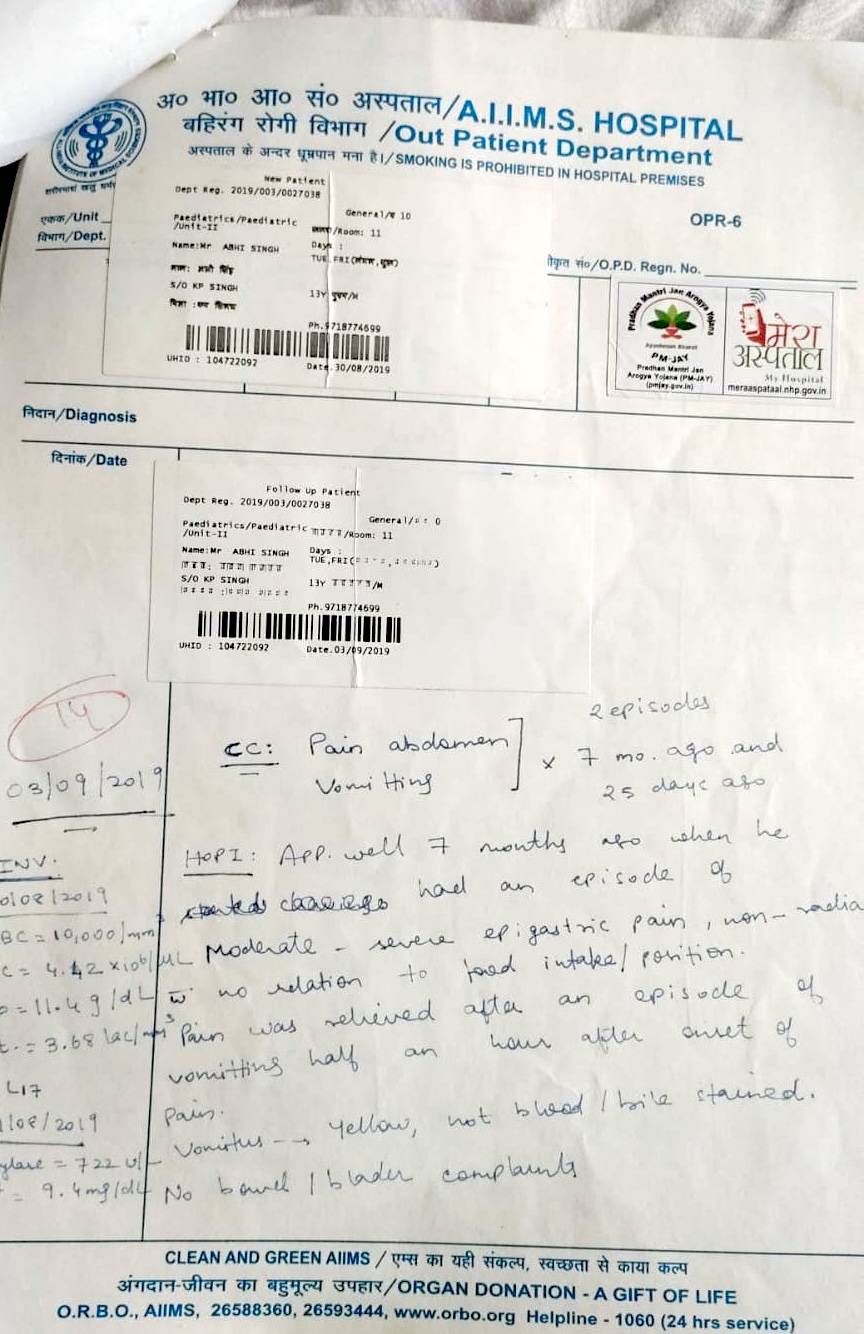 अ० भा० आ० सं० अस्पताल/A.I.I.M.S. HOSPITAL
बहिरंग रोगी विभाग /Out Patient Department
अस्पताल के अन्दर धूम्रपान मना है।/SMOKING IS PROHIBITED IN HOSPITAL PREMISES
OPR-6
एकक/Unit
विभाग/Dept.
New Patient
Dept Reg. 2019/003/0027038
General/₹ 10
Paediatrics/Paediatric
/Unit-II
/Room: 11
Name:Mr ABHI SINGH
Days :
TUE,FRI
S/O KP SINGH
13Y /M
Ph.9718774699
UHID : 104722092
Date.30/08/2019
/O.P.D. Regn. No.
Pradhan Mantri Jan Arogya Yojana
Ayushmaan Bharat
PM-JAY
Pradhan Mantri Jan
Arogya Yojana (PM-JAY)
(pmjay.gov.in)
मेरा
अस्पताल
My Hospital
meraaspataal.nhp.gov.in
निदान/Diagnosis
दिनांक/Date
Follow Up Patient
Dept Reg. 2019/003/0027038
General/ : 0
Paediatrics/Paediatric
/Unit-II
/Room: 11
Name:Mr ABHI SINGH
Days :
TUE,FRI
S/O KP SINGH
13Y /M
Ph.9718774699
UHID : 104722092
Date.03/09/2019
03/09/2019
INV.
0/08/2019
BC = 10,000/mm3
C = 4.42 x 106/μL
= 11.4 g/dL
t. = 3.68 lac/mm3
1/08/2019
ylase = 722 U/L
= 9.4 mg/dL
2 episodes
CC: Pain abdomen
Vomitting
x 7 mo. ago and
25 days ago
HOPI: App. well 7 months ago when he
had an episode of
Moderate - severe epigastric pain, non-radia
no relation to food intake/position.
Pain was relieved after an episode of
vomitting half an hour after onset of
pain.
Vomitus → yellow, not blood/bile stained.
No bowel/blader complaints
CLEAN AND GREEN AIIMS / एम्स का यही संकल्प, स्वच्छता से काया कल्प
अंगदान-जीवन का बहुमूल्य उपहार/ORGAN DONATION - A GIFT OF LIFE
O.R.B.O., AIIMS, 26588360, 26593444, www.orbo.org Helpline - 1060 (24 hrs service)